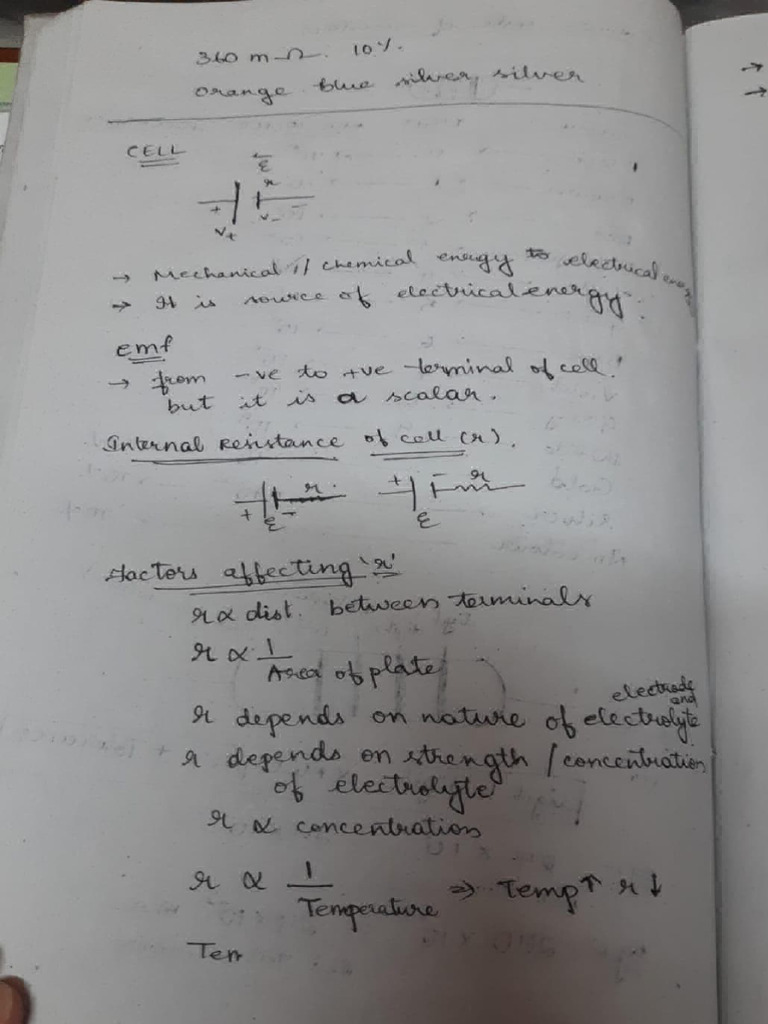 360 m Ω. 10%.
orange blue silver, silver
CELL
ε
r
+ -
V+ V-
→ Mechanical // chemical energy to electrical energy
→ It is source of electrical energy.
emf
→ from -ve to +ve terminal of cell.
but it is a scalar.
Internal Resistance of cell (r).
r. + - r
+ ε - ε
Factors affecting 'r'
r ∝ dist. between terminals
r ∝ 1/Area of plate
electrode and
r depends on nature of electrolyte
r depends on strength / concentration
of electrolyte
r ∝ concentration
r ∝ 1/Temperature ⇒ Temp↑ r↓
Tem